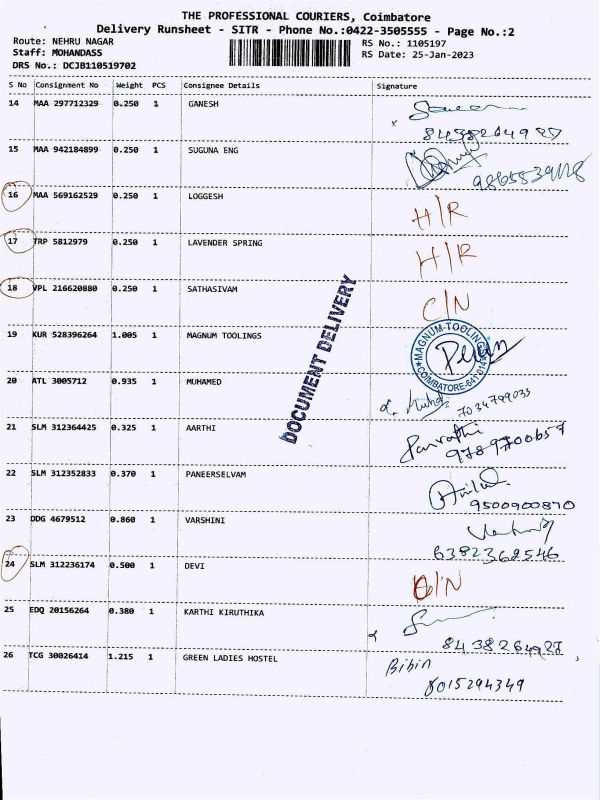 THE PROFESSIONAL COURIERS, Coimbatore
Delivery Runsheet - SITR - Phone No.:0422-3505555 - Page No.:2
Route: NEHRU NAGAR RS No.: 1105197
Staff: MOHANDASS RS Date: 25-Jan-2023
DRS No.: DCJB110519702
S No Consignment No Weight PCS Consignee Details Signature
14 MAA 297712329 0.250 1 GANESH
x 8438264987
15 MAA 942184899 0.250 1 SUGUNA ENG
16 MAA 569162529 0.250 1 LOGGESH H/R
17 TRP 5812979 0.250 1 LAVENDER SPRING H/R
18 VPL 216620880 0.250 1 SATHASIVAM C/N
DOCUMENT DELIVERY
19 KUR 528396264 1.005 1 MAGNUM TOOLINGS
MAGNUM-TOOLING COIMBATORE-641014
20 ATL 3005712 0.935 1 MUHAMED
7034799033
21 SLM 312364425 0.325 1 AARTHI Parvathi
9789700657
22 SLM 312352833 0.370 1 PANEERSELVAM
9500900870
23 DDG 4679512 0.860 1 VARSHINI
6382362546
24 SLM 312236174 0.500 1 DEVI /N
25 EDQ 20156264 0.380 1 KARTHI KIRUTHIKA
8438264987
26 TCG 30026414 1.215 1 GREEN LADIES HOSTEL Bibin
8015294349